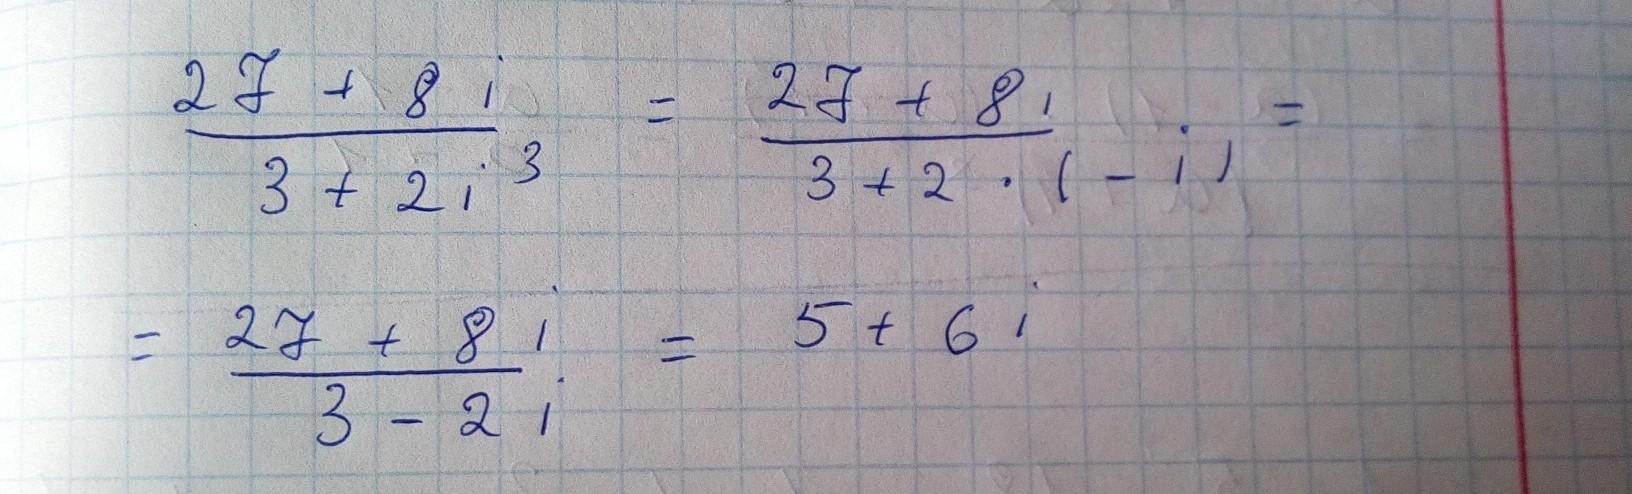 27 + 8i / 3 + 2i³ = 27 + 8i / 3 + 2 · (-i) =
= 27 + 8i / 3 - 2i = 5 + 6i